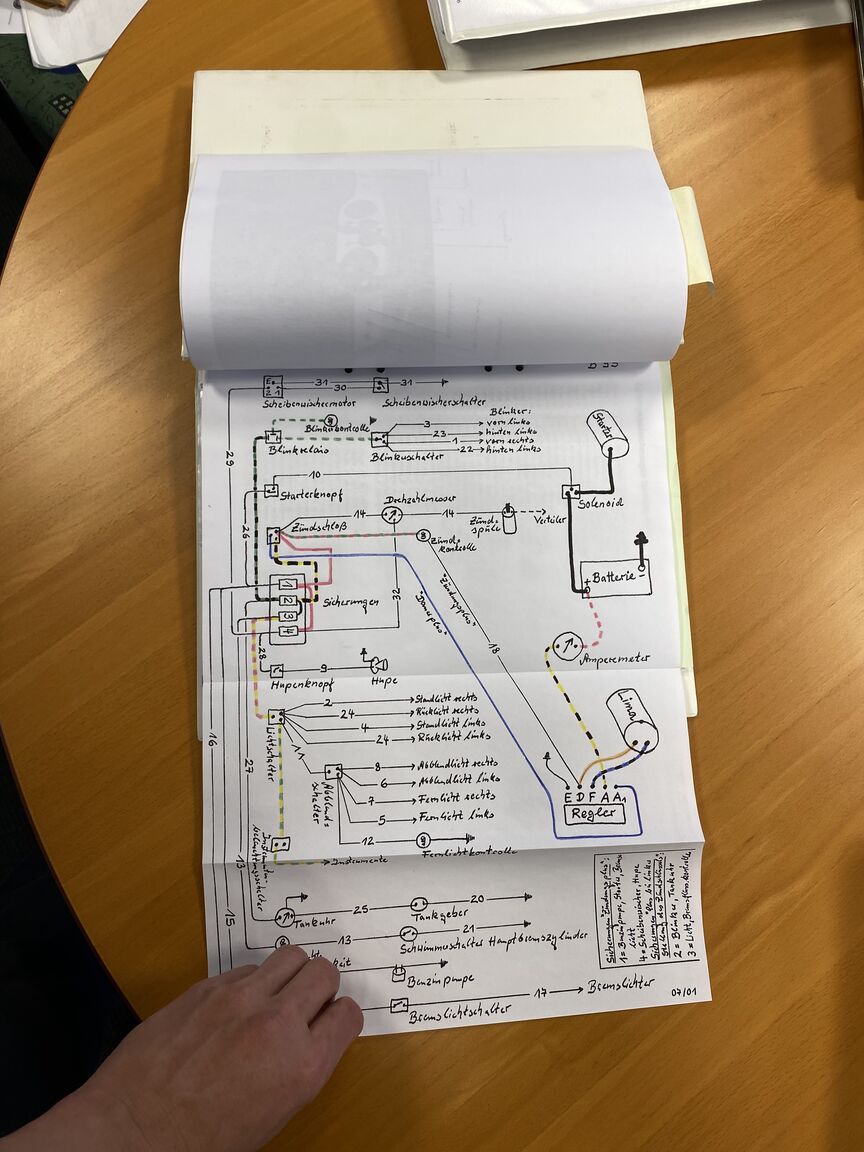 31
30
31
Scheibenwischermotor
Scheibenwischerschalter
Blinker:
Blinkerkontrolle
3 vorn links
23 hinten links
1 vorn rechts
22 hinten links
Blinkrelais
Blinkerschalter
Starter
29
10
Starterknopf
Solenoid
Drehzahlmesser
14
14
Zündschloß
Zünd=
spüle
Verteiler
Zünd=
kontrolle
26
Batterie
+
-
1
2
3
4
Sicherungen
32
"Zündungsplus"
"Dauerplus"
18
28
9
Hupenknopf
Hupe
Amperemeter
Lima
2 Standlicht rechts
24 Rücklicht rechts
4 Standlicht links
24 Rücklicht links
Lichtschalter
11
16
27
8 Abblendlicht rechts
6 Abblendlicht links
7 Fernlicht rechts
5 Fernlicht links
Abblend=
schalter
12
Fernlichtkontrolle
E D F A A1
Regler
Instrumente
13
15
25
20
Tankuhr
Tankgeber
13
21
Schwimmschalter Hauptbremszylinder
Benzinpumpe
17
Bremslichter
Bremslichtschalter
Sicherungen "Zündungsplus":
1 = Benzinpumpe, Starter, Brems
licht
4 = Scheibenwischer, Hupe
2 = Blinker, Tankuhr
07/01